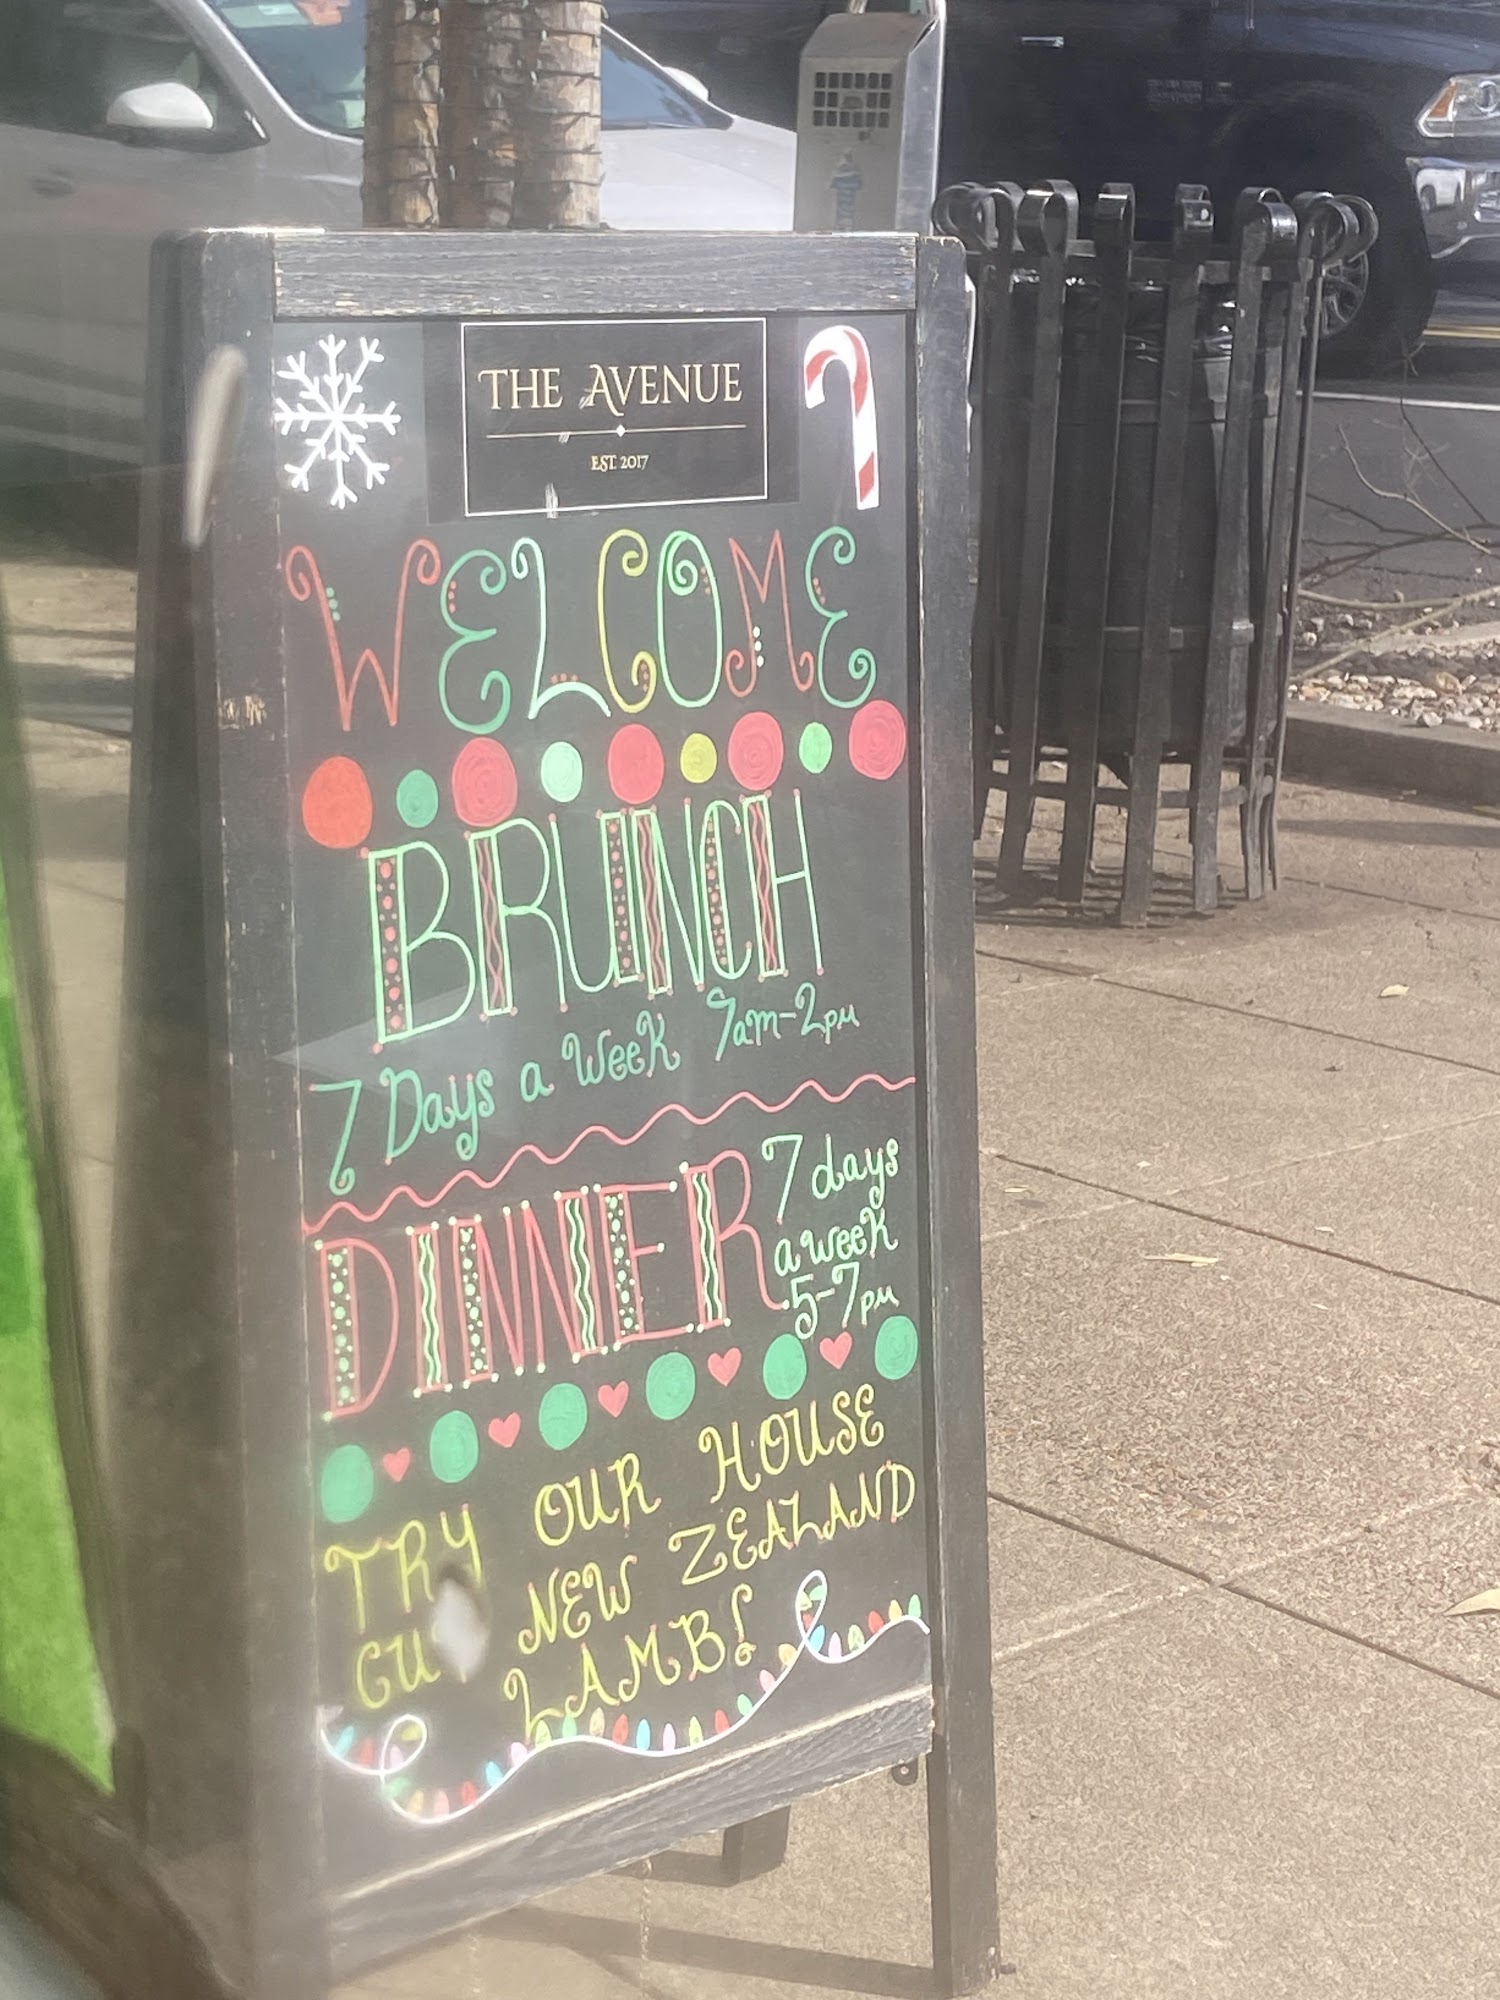 THE AVENUE
EST. 2017
WELCOME
BRUNCH
7 Days a Week 9am-2pm
DINNER
7 days
a week
5-7pm
TRY OUR HOUSE
NEW ZEALAND
LAMB!